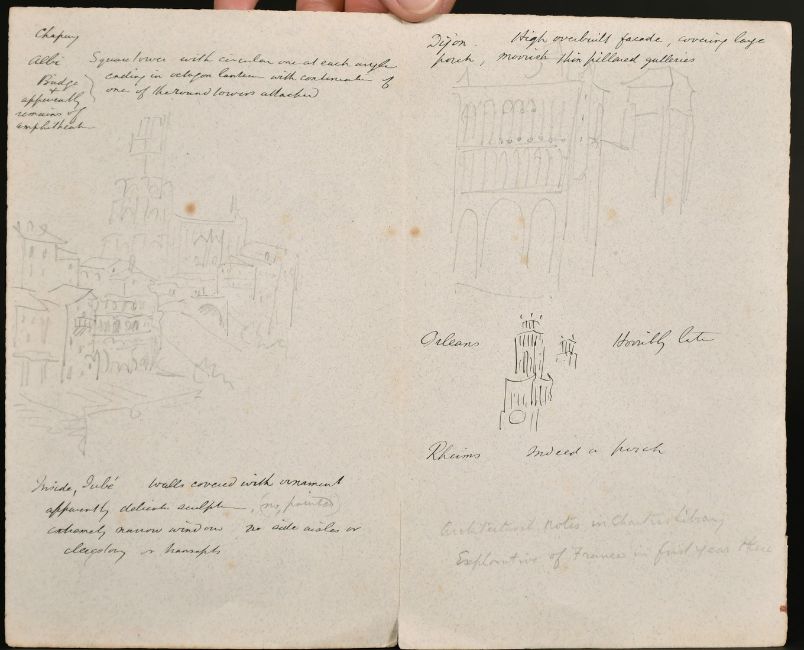 Chapuy
Albi Square tower with circular one at each angle
ending in octagon lantern with continuate of
one of the round towers attached
Bridge
+
apparently
remains of
amphitheat
Inside, Jubé walls covered with ornament
apparently delicate sculpture, (no, painted)
extremely narrow window no side aisles or
clerestory or transepts
Dijon. High overbuilt facade, covering large
porch, moorish thin pillared galleries
Orleans Horribly late
Rheims Indeed a porch
Architectural Notes in Charter Library
Explorative of France in first year there